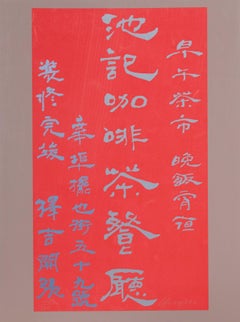 早午茶市 晚飯宵夜
池記咖啡茶餐廳
華埠擺也街五十九號
裝修完竣
擇吉開張